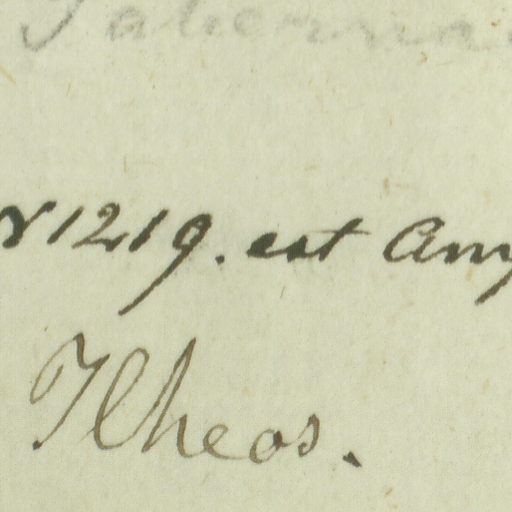 N 1219. est Amy
Ilheos.